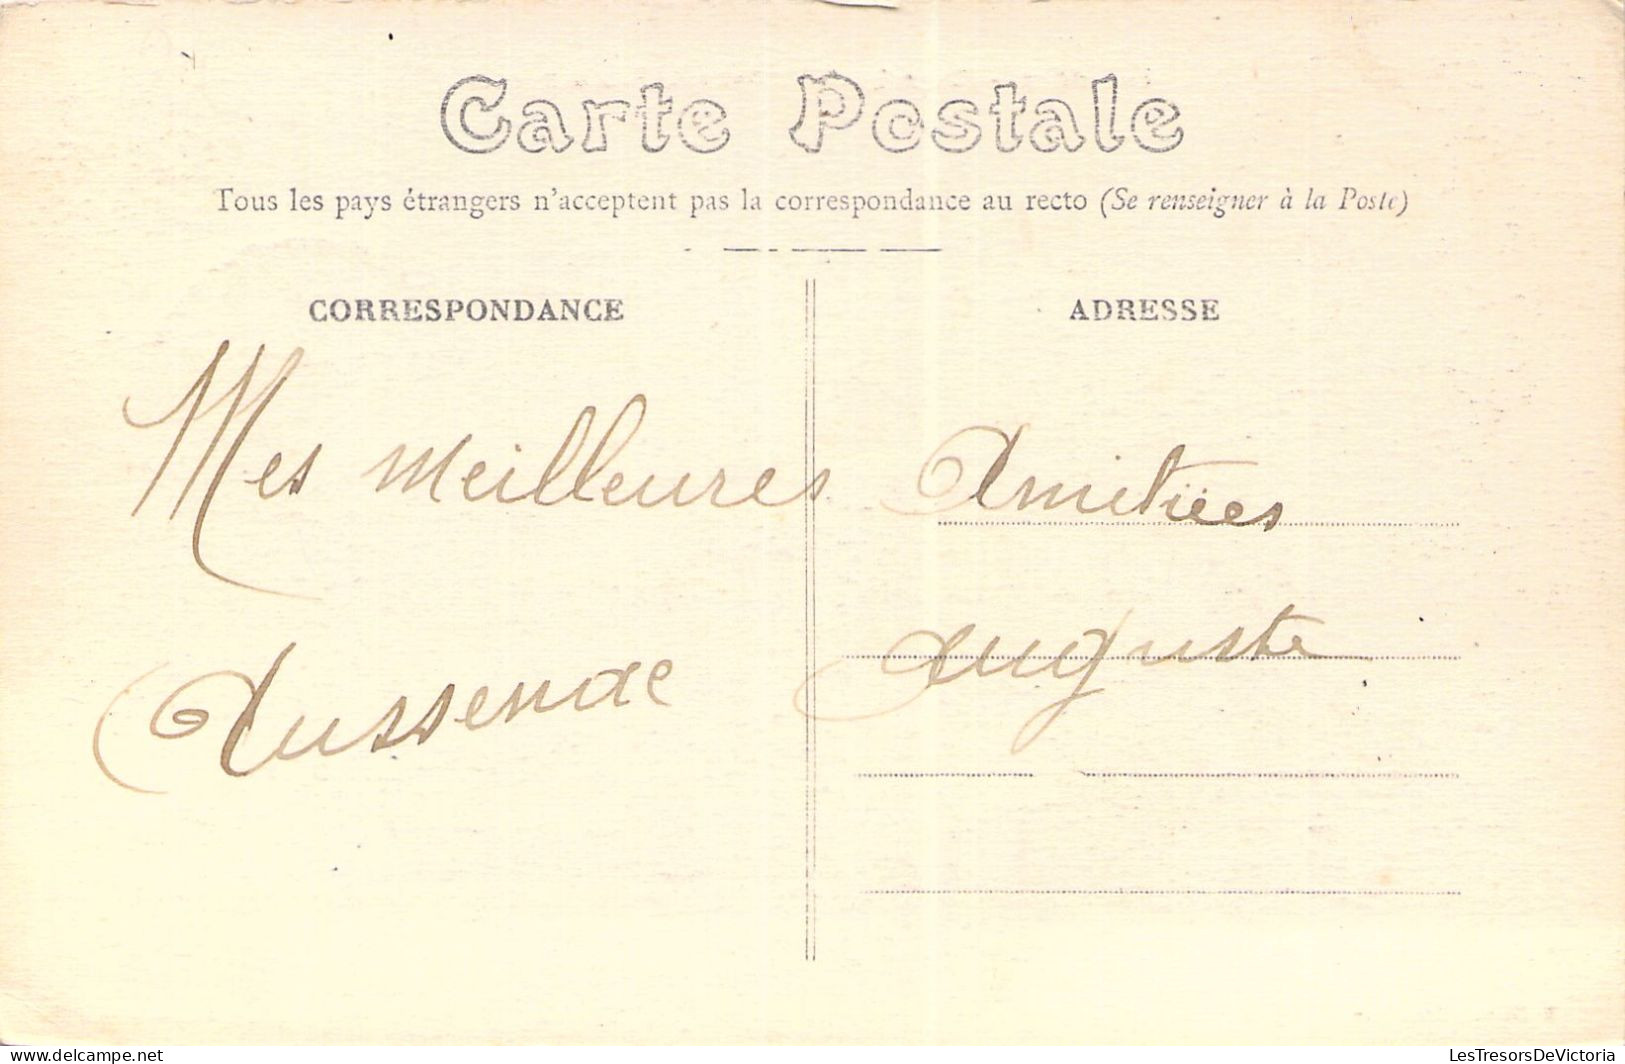 Carte Postale
Tous les pays étrangers n'acceptent pas la correspondance au recto (Se renseigner à la Poste)
CORRESPONDANCE
ADRESSE
Mes meilleures Amitiées
Aussenac Auguste
Les Tresors De Victoria
LesTresorsDeVictoria